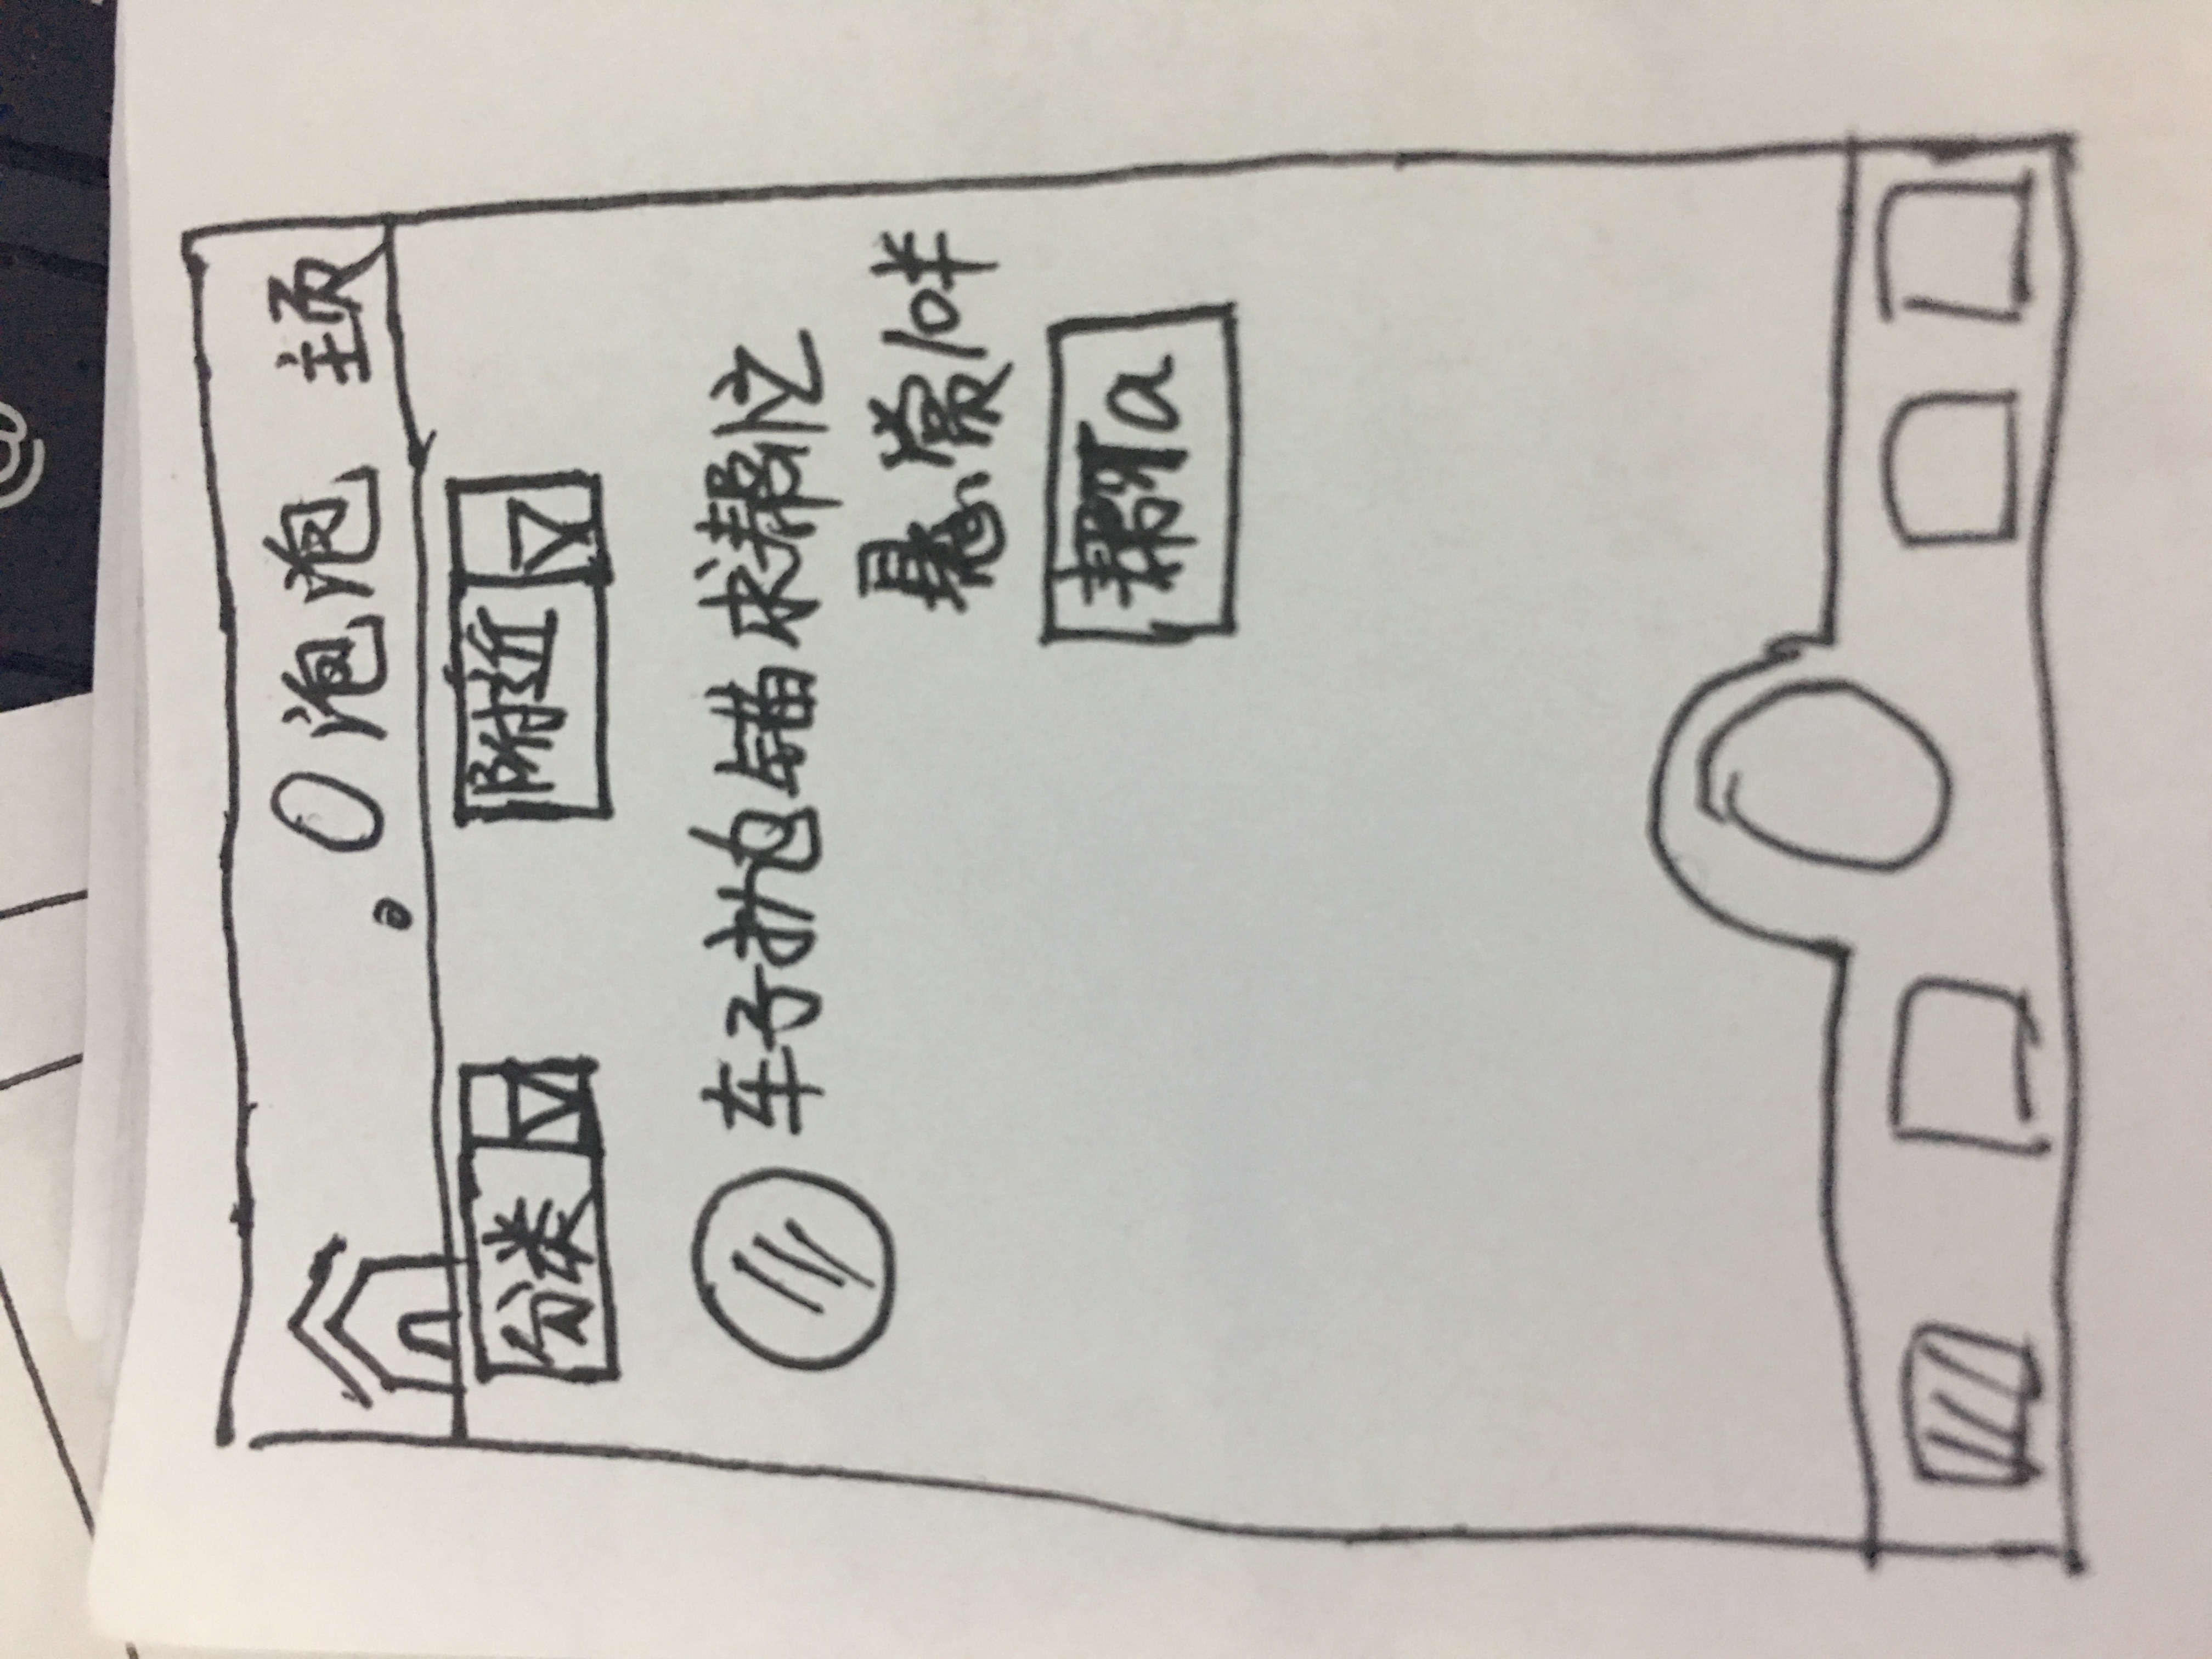 泡泡 主页
分类 附近
车子抛锚求帮忙
悬赏10米
帮Ta